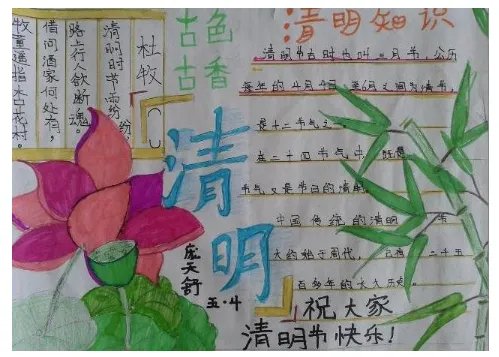 杜牧
清明时节雨纷纷,
路上行人欲断魂。
借问酒家何处有,
牧童遥指杏花村。
古色
古香
清明
庞天舒
五·4
清明知识
清明节古时也叫三月节 公历
每年的4月
是十二节气之
在二十四节气中,既是
节气又是节日的清明。
中国传统的清明 节
大约始于周代, 二千五
百多年的
祝大家
清明节快乐!